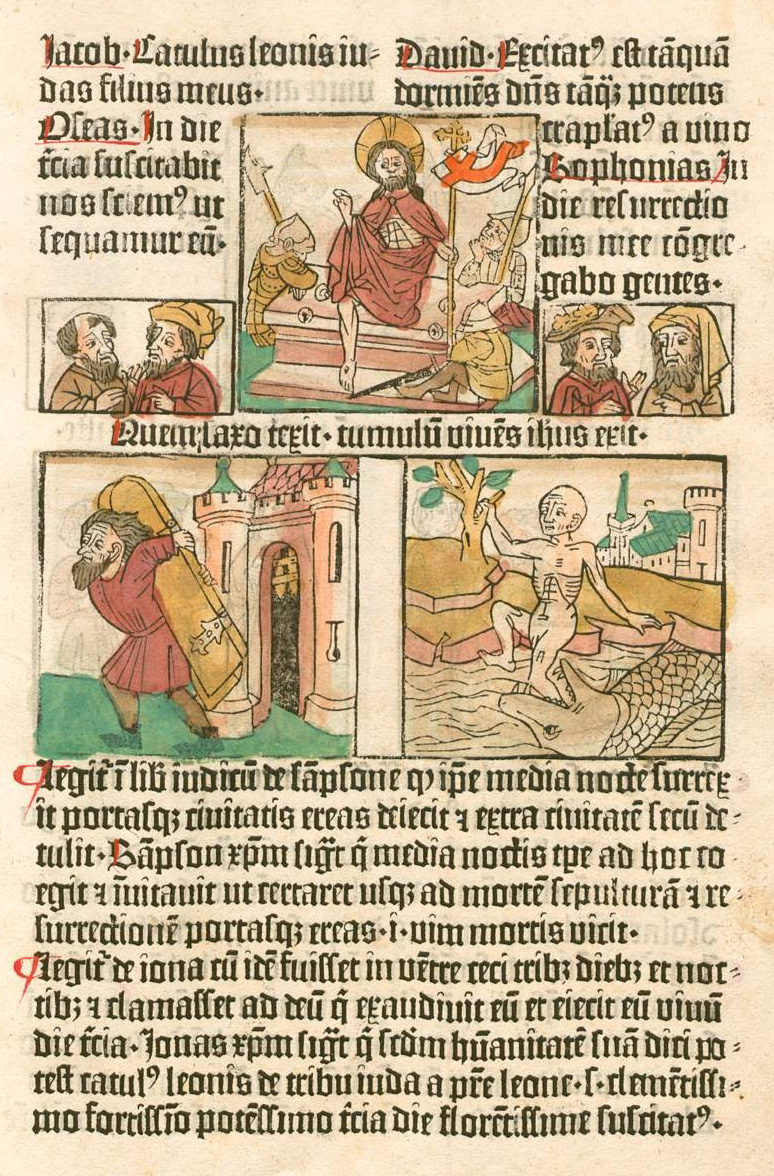 Jacob. Catulus leonis iu=
das filius meus.
Oseas. In die
t̄cia suscitabit
nos sciemꝰ ut
sequamur eū.
Dauid. Excitatꝰ est tāquā
dormiēs dn̄s tāqꝫ potens
crapl̄atꝰ a uino
Sophonias In
die resurrectio
nis mee cōgre-
gabo gentes.
Quem saxo texit. tumulū viuēs ih̄us exit.
¶ Legit̄ ī lib̄ iudicū de sāpsone ꝙ ip̄e media nocte surrex
it portasqꝫ ciuitatis ereas deiecit ⁊ extra ciuitatē secū de=
tulit. Sāpson xp̄m sigt̄ q̄ media noctis tp̄e ad hoc co
egit ⁊ īuitauit ut certaret usqꝫ ad mortē sepulturā ⁊ re-
surrectionē portasqꝫ ereas .i. vim mortis vicit.
¶ Legit̄ de iona cū idē fuisset in vētre ceti tribꝫ diebꝫ et noc=
tibꝫ ⁊ clamasset ad deū q̄ exaudiuit eū et eiecit eū viuū
die t̄cia. Jonas xp̄m sigt̄ q̄ scd̄m hūanitatē suā dici po=
test catulꝰ leonis de tribu iuda a p̄re leone .s. clemētissi=
mo fortissīo potēssimo t̄cia die florētissime suscitatꝰ.